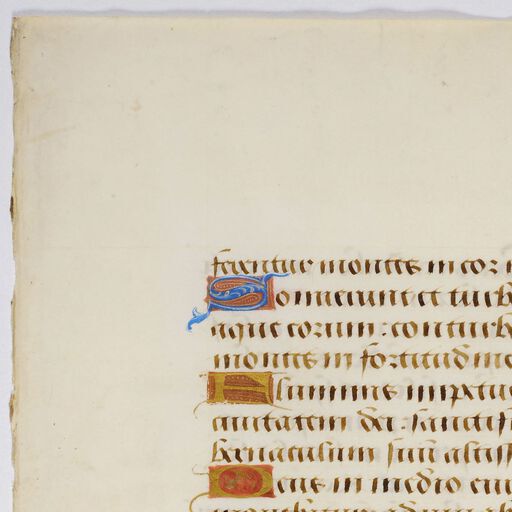 ferentur montes in cor m
Sonuerunt et turb
aque eorum: conturb
montes in fortitudine
Fluminis impetu
ciuitatem dei: sanctifi
bernaculum suũ altiss
Deus in medio eiu